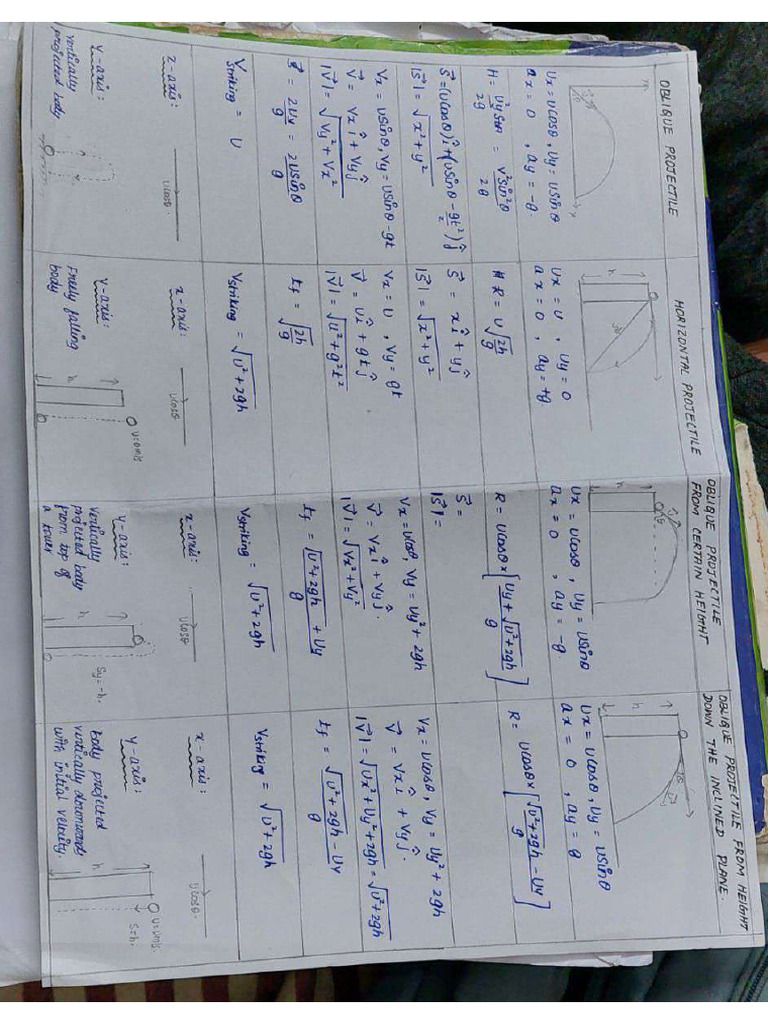 OBLIQUE PROJECTILE
y
u
θ
x
Ux = Ucosθ, Uy = Usinθ
ax = 0 , ay = -g.
H = Uy² sin θ / 2g = V² sin² θ / 2g
S⃗ = (Ucosθ)î + (Usinθ - gt²/2) ĵ
|S⃗| = √x² + y²
Vx = Usinθ, Vy = Usinθ - gt
V⃗ = Vx î + Vy ĵ
|V⃗| = √Vy² + Vx²
= 2Uy/g = 2Usinθ/g
Vstriking = U
x-axis:
Ucosθ.
y-axis:
vertically
projected body
HORIZONTAL PROJECTILE
h
Ux = U , Uy = 0
ax = 0 , ay = +g.
R = U√2h/g
S⃗ = xî + yĵ
|S⃗| = √x² + y²
Vx = U , Vy = gt
V⃗ = Uî + gtĵ
|V⃗| = √U² + g²t²
tf = √2h/g
Vstriking = √U² + 2gh
x-axis:
Ucosθ
y-axis:
Freely falling
body
h
U=0m/s
OBLIQUE PROJECTILE
FROM CERTAIN HEIGHT
h
θ
Ux = Ucosθ, Uy = Usinθ
ax = 0 , ay = -g.
R = Ucosθ × [Uy + √U² + 2gh / g]
S⃗ =
|S⃗| =
Vx = Ucosθ, Vy = Uy² + 2gh
V⃗ = Vx î + Vy ĵ.
|V⃗| = √Vx² + Vy²
tf = √U² + 2gh / g + Uy
Vstriking = √U² + 2gh
x-axis:
Ucosθ
y-axis:
vertically
projected body
from top of
a tower
h
Sy = -h.
OBLIQUE PROJECTILE FROM HEIGHT
DOWN THE INCLINED PLANE.
h
Ux = Ucosθ, Uy = Usinθ
ax = 0 , ay = g
R = Ucosθ × [√U² + 2gh - Uy / g]
Vx = Ucosθ, Vy = Uy² + 2gh
V⃗ = Vx î + Vy ĵ.
|V⃗| = √Ux² + Uy² + 2gh = √U² + 2gh
tf = √U² + 2gh - Uy / g
Vstriking = √U² + 2gh
x-axis:
Ucosθ.
y-axis:
body projected
vertically downwards
with initial velocity.
h
S=h.